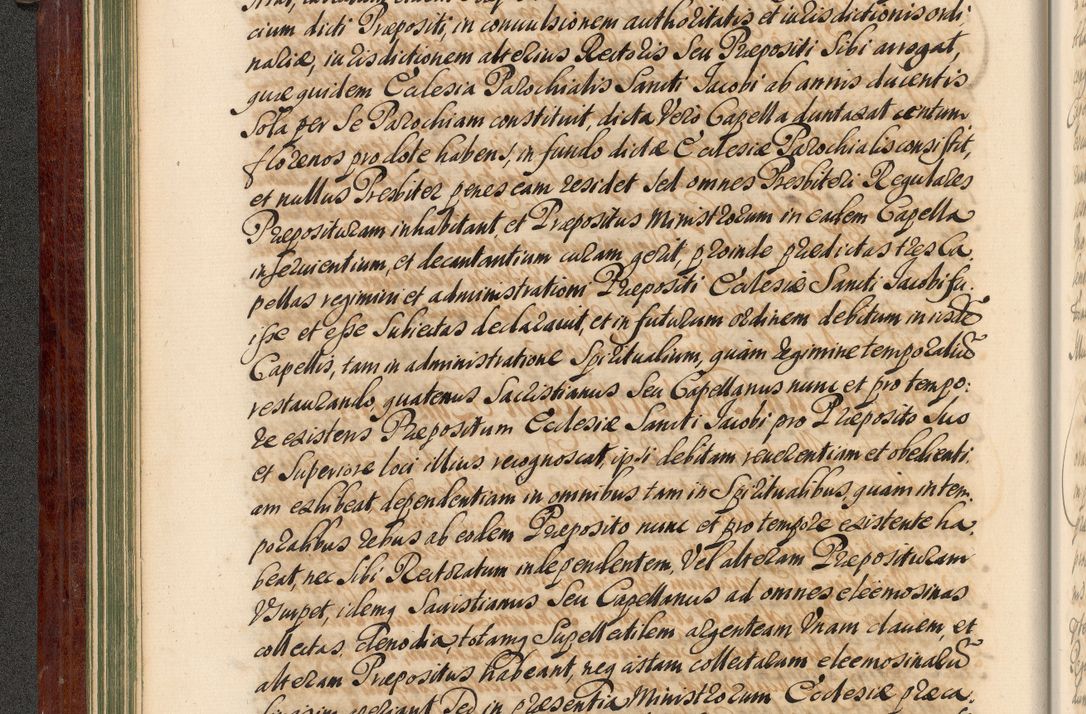 cium dicti Præpositi, in convulsionem authoritatis et iurisdictionis ordi
nariæ, iurisdictionem alterius Rectoris Seu Præpositi Sibi arrogat,
quæ quidem Ecclesia Parochialis Sancti Jacobi ab annis ducentis
Sola per Se Parochiam constituit, dicta Vero Capella duntaxat centum
florenos pro dote habens, in fundo dictæ Ecclesiæ Parochialis consistit,
et nullus Presbiter penes eam residet Sed omnes Presbiteri Regulares
Præposituram inhabitant, et Præpositus Ministrorum in eadem Capella
inseruientium, et decantantium curam gerit, proinde prædictas tres Ca
pellas regimini et administrationi Præpositi Ecclesiæ Sancti Jacobi fu
isse et esse Subiectas declarauit, et in futurum ordinem debitum in iisdē
Capellis, tam in administratione Spiritualium, quam regimine temporaliū
restaurando, quatenus Sacristianus Seu Capellanus nunc et pro tempo:
re existens Præpositum Ecclesiæ Sancti Jacobi pro Præposito Suo
et Superiore loci illius recognoscat, ipsi debitam reuerentiam et obedienti
am exhibeat, dependentiam in omnibus tam in Spiritualibus, quam in tem
poralibus rebus ab eodem Præposito nunc et pro tempore existente ha
beat, nec Sibi Rectoratum independentem, Vel alteram Præposituram
Vsurpet, idemq Sacristianus Seu Capellanus ad omnes eleëmosinas
collectas, Clenodia, totamq Supellectilem argenteam Vnam clauem, et
alteram Præpositus habeant, neq cistam collectarum eleemosinarū
aperiant Sed in præsentia Ministrorum Ecclesiæ præca